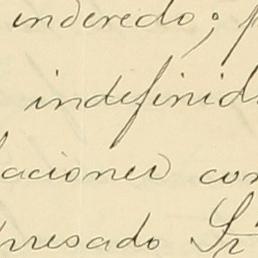 inderedo; p
indefinid
laciones con
presado Sr